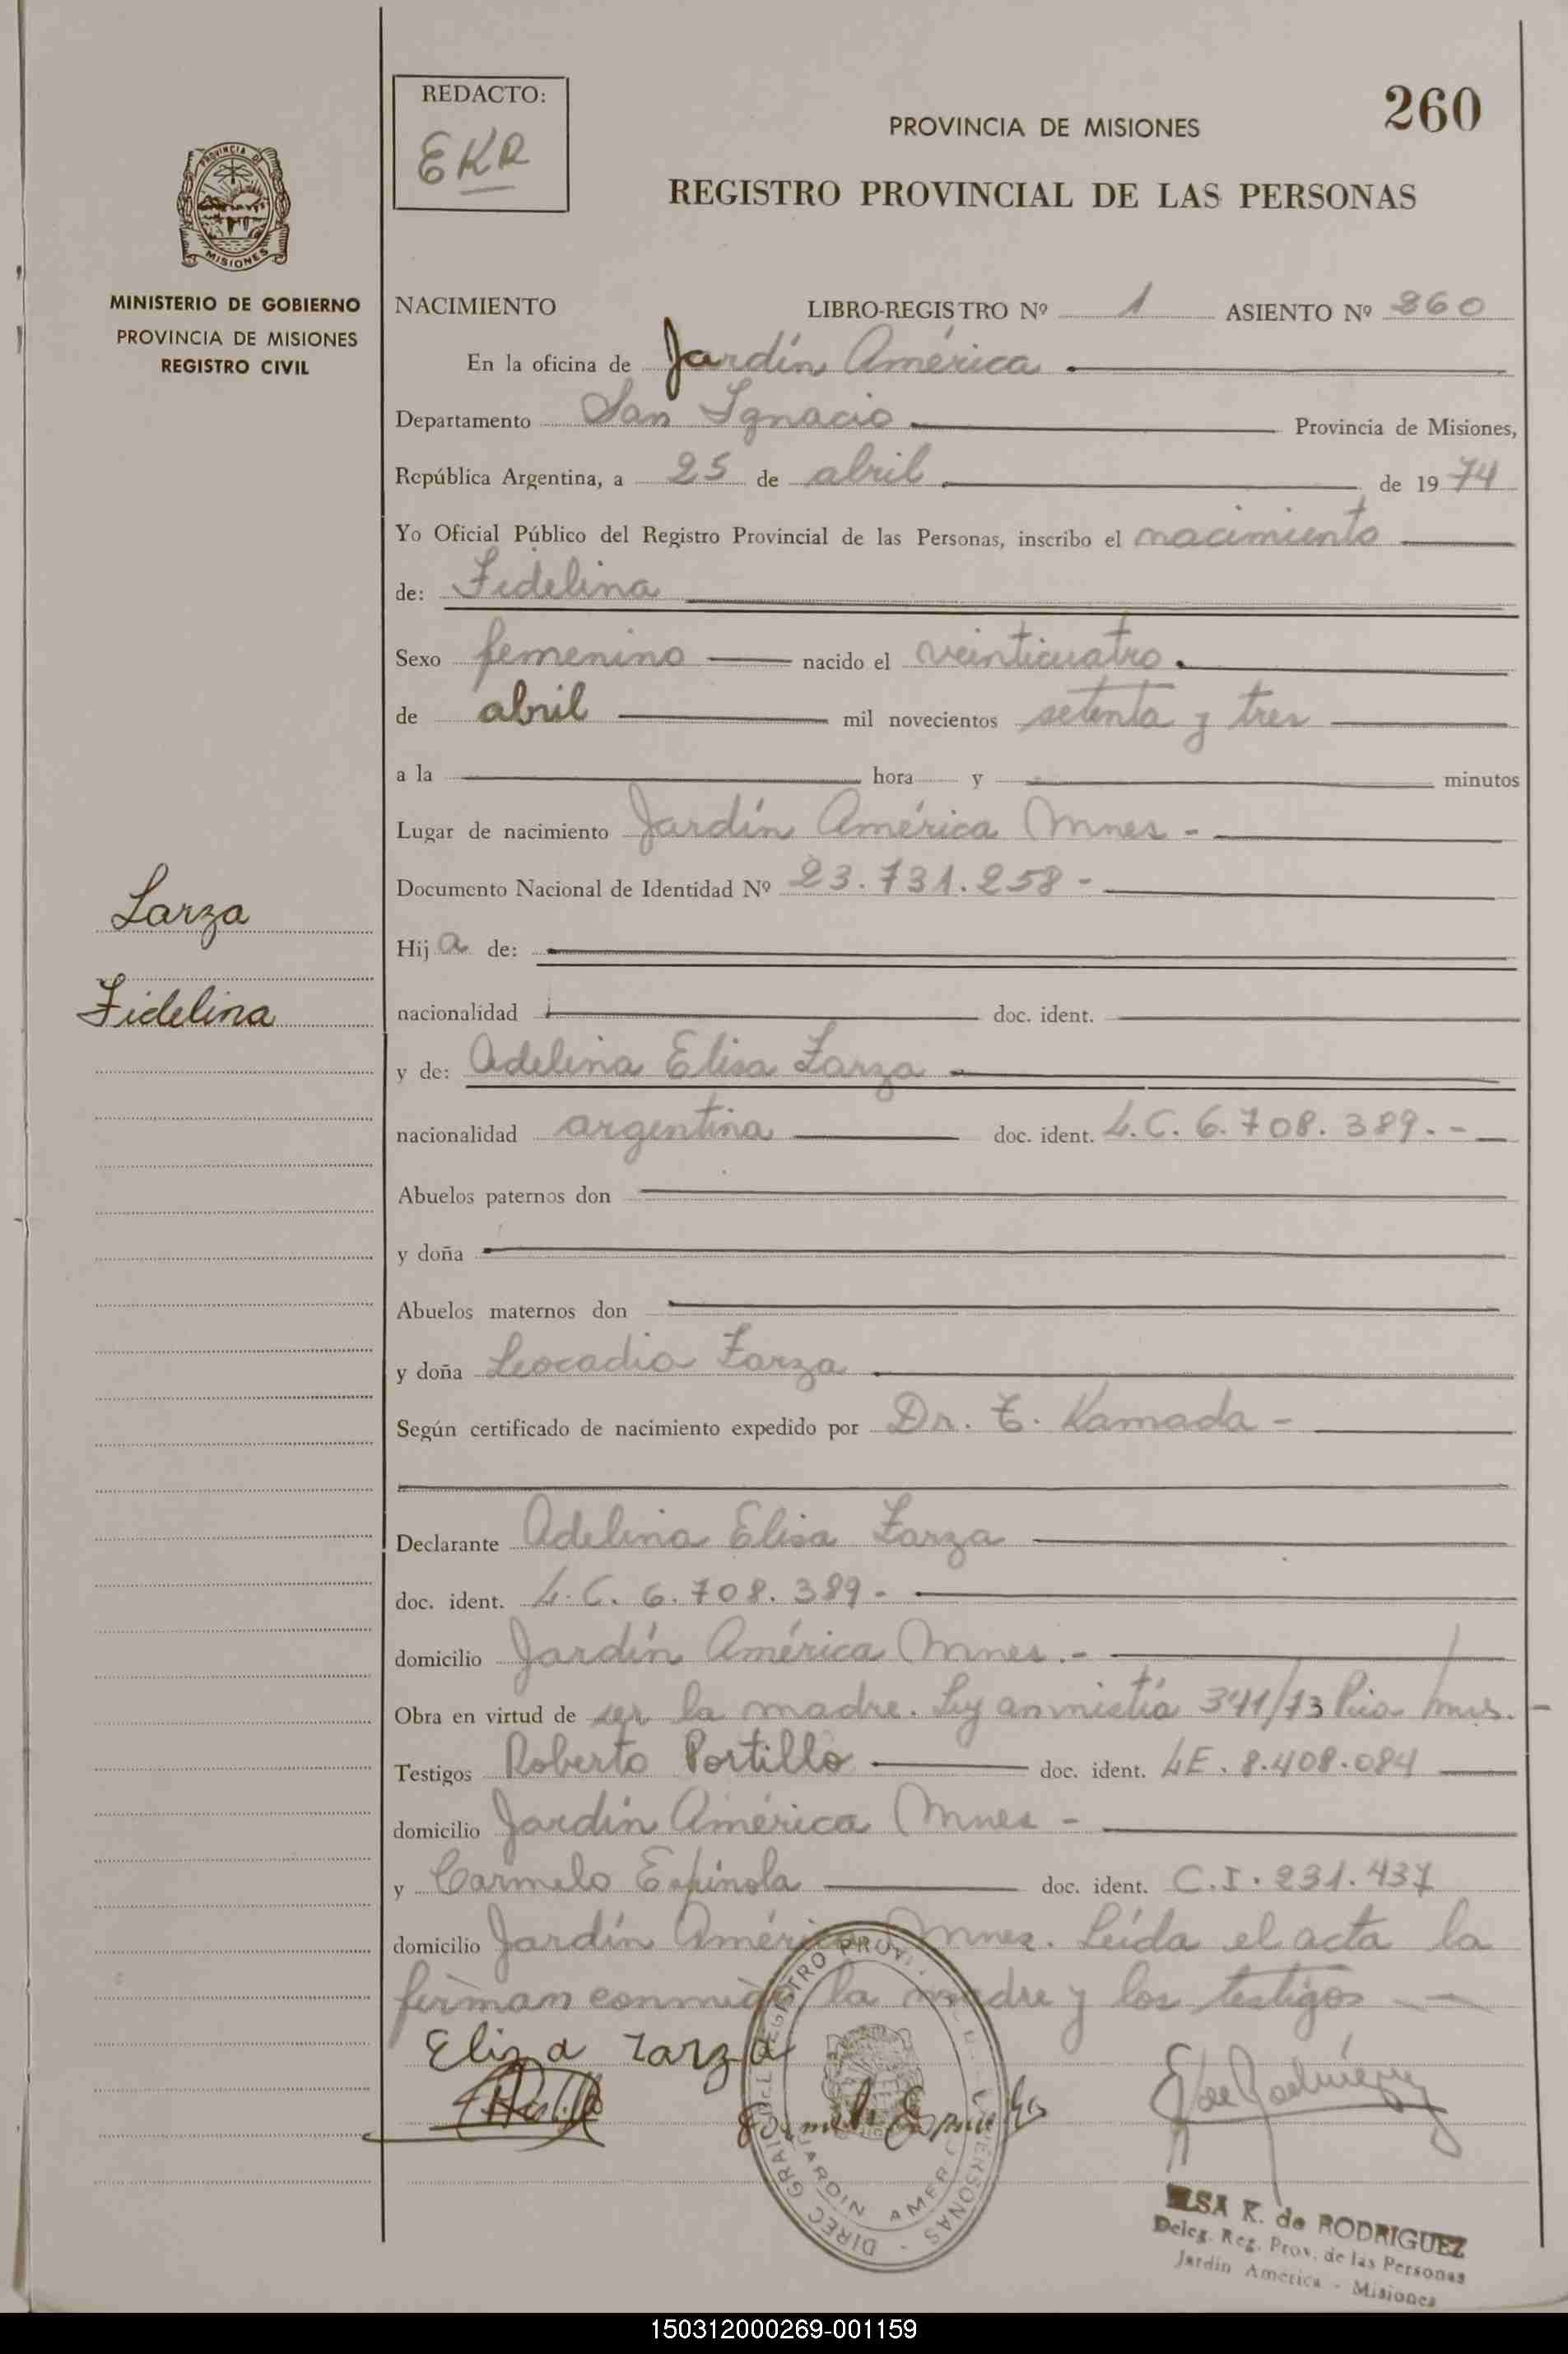 REDACTO:
EKR
260
PROVINCIA DE MISIONES
REGISTRO PROVINCIAL DE LAS PERSONAS
PROVINCIA DE
MISIONES
MINISTERIO DE GOBIERNO
PROVINCIA DE MISIONES
REGISTRO CIVIL
NACIMIENTO LIBRO-REGISTRO Nº 1 ASIENTO Nº 260
En la oficina de Jardín América
Departamento San Ignacio Provincia de Misiones,
República Argentina, a 25 de abril de 1974
Yo Oficial Público del Registro Provincial de las Personas, inscribo el nacimiento
de: Fidelina
Sexo femenino nacido el veinticuatro
de abril mil novecientos setenta y tres
a la hora y minutos
Lugar de nacimiento Jardín América Mnes -
Documento Nacional de Identidad Nº 23.731.258 -
Zarza
Fidelina
Hija de:
nacionalidad doc. ident.
y de: Adelina Elisa Zarza
nacionalidad argentina doc. ident. L.C. 6.708.389.-
Abuelos paternos don
y doña
Abuelos maternos don
y doña Leocadia Zarza
Según certificado de nacimiento expedido por Dr. T. Kamada -
Declarante Adelina Elisa Zarza
doc. ident. L.C. 6.708.389 -
domicilio Jardín América Mnes.-
Obra en virtud de ser la madre. Ley amnistía 341/73 Pcia Mns. -
Testigos Roberto Portillo doc. ident. LE. 8.408.084
domicilio Jardín América Mnes -
y Carmelo Espínola doc. ident. C.I. 231.437
domicilio Jardín América Mnes. Leída el acta la
firman conmigo la madre y los testigos
Eliza Zarza
ELSA K. de RODRIGUEZ
Deleg. Reg. Prov. de las Personas
Jardín America - Misiones
150312000269-001159